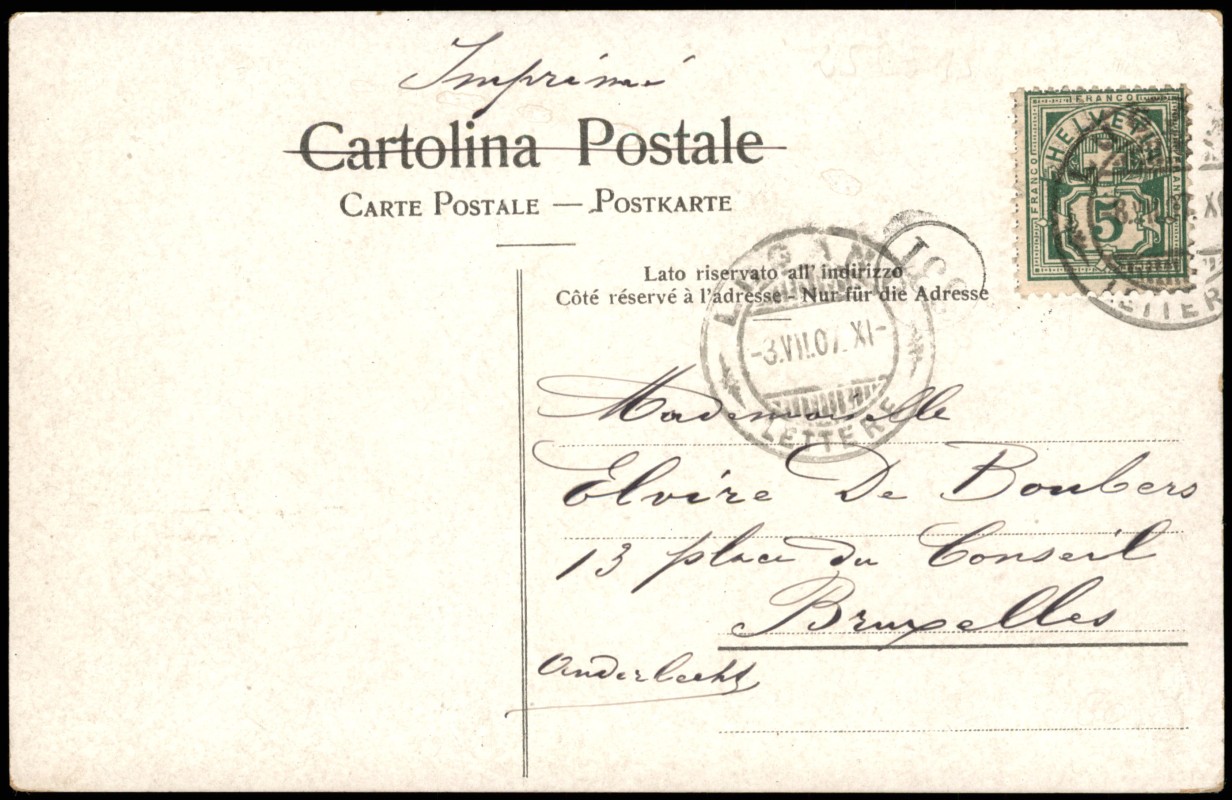 Imprimé
Cartolina Postale
CARTE POSTALE — POSTKARTE
FRANCO
HELVETIA
FRANCO
5
LETTERE
Lato riservato all' indirizzo
Côté réservé à l'adresse - Nur für die Adresse
-3.VII.07. XI-
LETTERE
Mademoiselle
Elvire De Boubers
13 place du Conseil
Bruxelles
Anderlecht